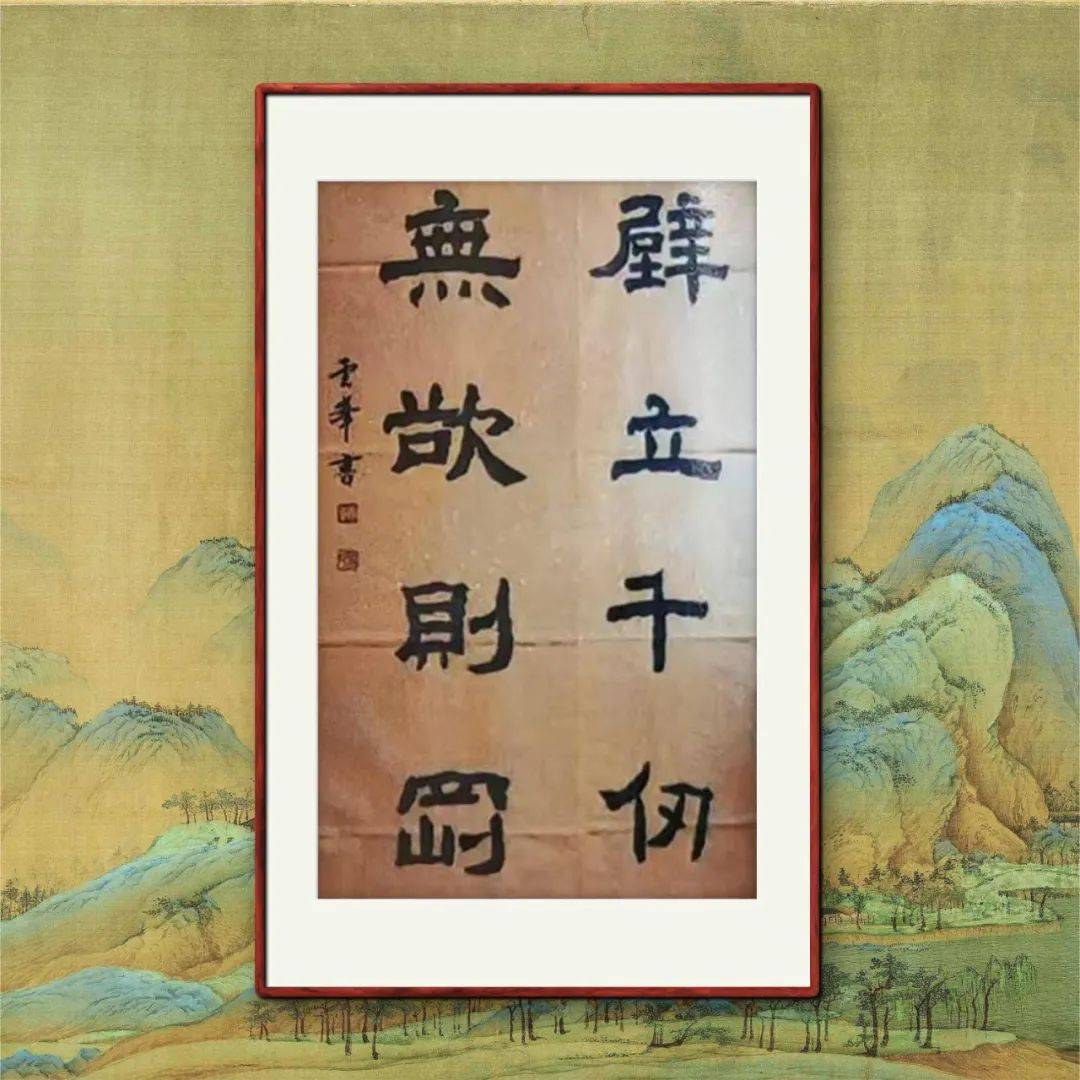 壁立千仞
無欲則罡
雲峯書